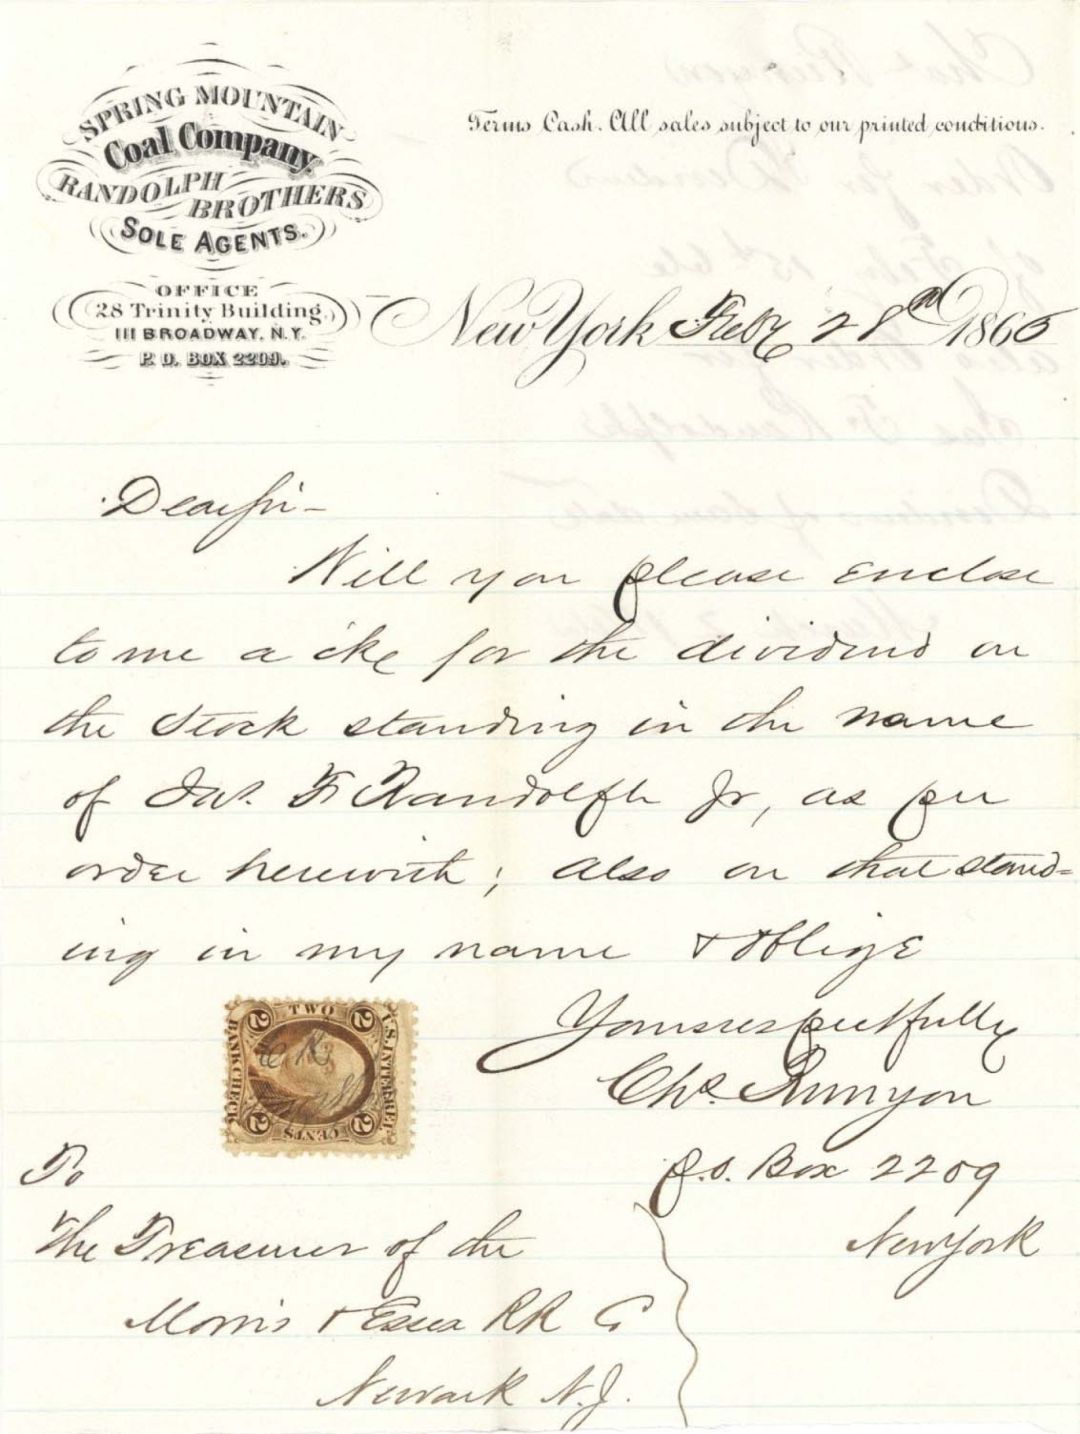 SPRING MOUNTAIN
Coal Company,
RANDOLPH
BROTHERS
SOLE AGENTS.
OFFICE
28 Trinity Building,
111 BROADWAY. N.Y.
P. O. BOX 2209.
Terms Cash. All sales subject to our printed conditions.
New York Feby 28th 1865
Dear Sir -
Will you please enclose
to me a cke for the dividend on
the Stock standing in the name
of Jas. F. Randolph Jr, as per
order herewith; also on that stand=
ing in my name & oblige
Yours respectfully
Chs. Runyon
P.O. Box 2209
New York
TWO
U.S. INTER. REV.
BANK CHECK
CENTS
2
2
2
2
To
The Treasurer of the
Morris & Essex RR Co
Newark N.J.